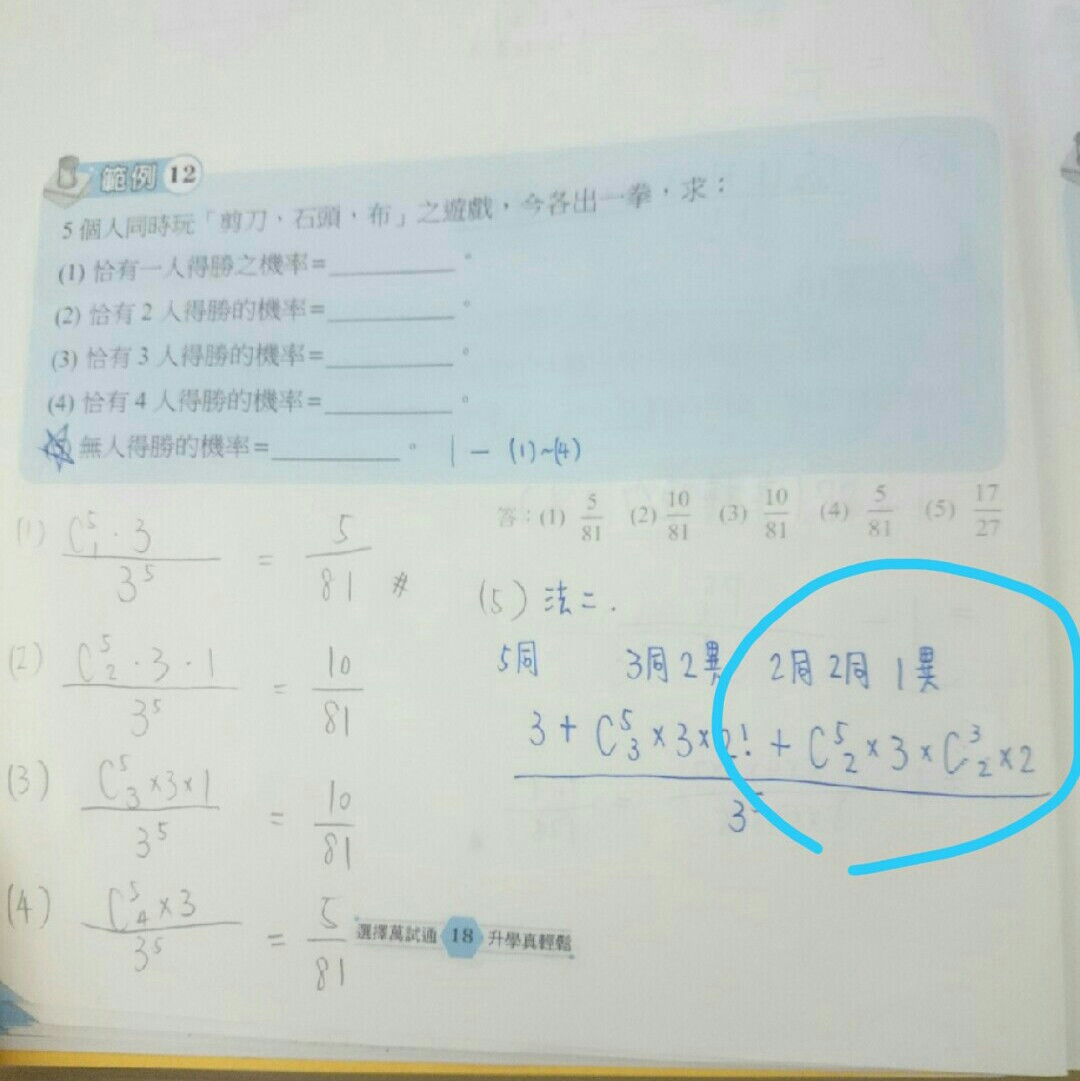 範例 12
5 個人同時玩「剪刀,石頭,布」之遊戲,今各出一拳,求:
(1) 恰有一人得勝之機率=__________。
(2) 恰有 2 人得勝的機率=__________。
(3) 恰有 3 人得勝的機率=__________。
(4) 恰有 4 人得勝的機率=__________。
無人得勝的機率=__________。 1 - (1)~(4)
答:(1) 5/81 (2) 10/81 (3) 10/81 (4) 5/81 (5) 17/27
(1) C⁵₁·3 / 3⁵ = 5/81 #
(2) C⁵₂·3·1 / 3⁵ = 10/81
(3) C⁵₃×3×1 / 3⁵ = 10/81
(4) C⁵₄×3 / 3⁵ = 5/81
(5) 法二.
5同 3同2異 2同2同1異
3 + C⁵₃×3×2! + C⁵₂×3×C³₂×2 / 3⁵
選擇萬試通 18 升學真輕鬆